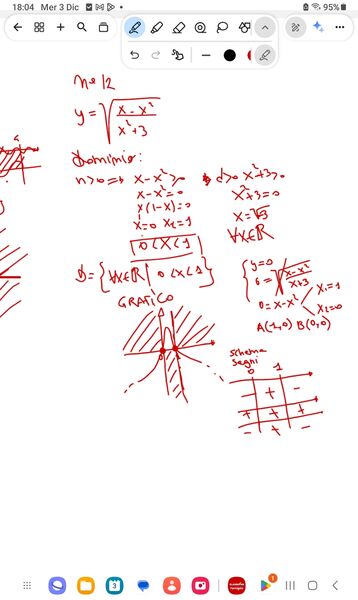 18:04 Mer 3 Dic
95%
n° 12
y = √((x - x²)/(x² + 3))
Dominio:
n>0 ⇒ x - x² ≥0
x - x² = 0
x(1-x)=0
x=0 x₂=1
0<x<1
d>0 x²+3>0
x²+3=0
x=√3
∀x∈ℝ
D = {∀x∈ℝ | 0<x<1}
{ y=0
0 = √((x-x²)/(x+3))
0=x-x²
x₁=1
x₂=0
A(-1,0) B(0,0)
GRAFICO
schema
segni
0 1
- + -
+ + +
- + -
3
1